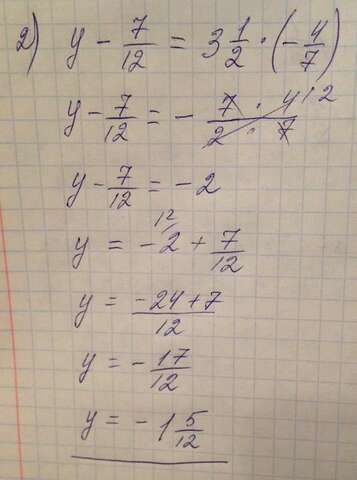 2) y - 7/12 = 3 1/2 · (- 4/7)
y - 7/12 = - 7 · 4 2 / 2 · 7
y - 7/12 = - 2
12
y = - 2 + 7/12
y = -24+7 / 12
y = - 17/12
y = - 1 5/12